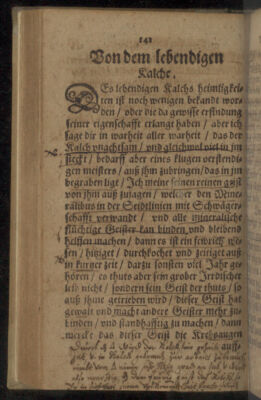 142
Von dem lebendigen
Kalche.
DEs lebendigen Kalchs heimligkei-
ten ist noch wenigen bekandt wor-
den / oder die da gewisse erfindung
seiner eigenschafft erlangt haben / aber ich
sage dir in warheit aller warheit / das der
Kalch unachtsam / und gleichwol viel in jm
steckt / bedarff aber eines klugen verstendi-
gen meisters / auß ihm zubringen / das in jm
begraben ligt / Ich meine seinen reinen geist
von jhm auß zujagen / welcher den Mine-
ralibus in der Seitelinien mit Schwäger-
schafft verwandt / und alle mineralische
flüchtige Geister kan binden / und bleibend
helffen machen / dann es ist ein fewrich we-
sen / hitziget / durchkochet und zeitiget auß
in kurtzer zeit / darzu sonsten viel Jahr ge-
hören / es thuts aber sein grober Jrdischer
leib nicht / sondern sein Geist der thuts / so
auß jhme getrieben wird / dieser Geist hat
gewalt und macht andere Geister mehr zu-
binden / und standhafftig zu machen / dann
mercke das dieser Geist die Krebsaugen